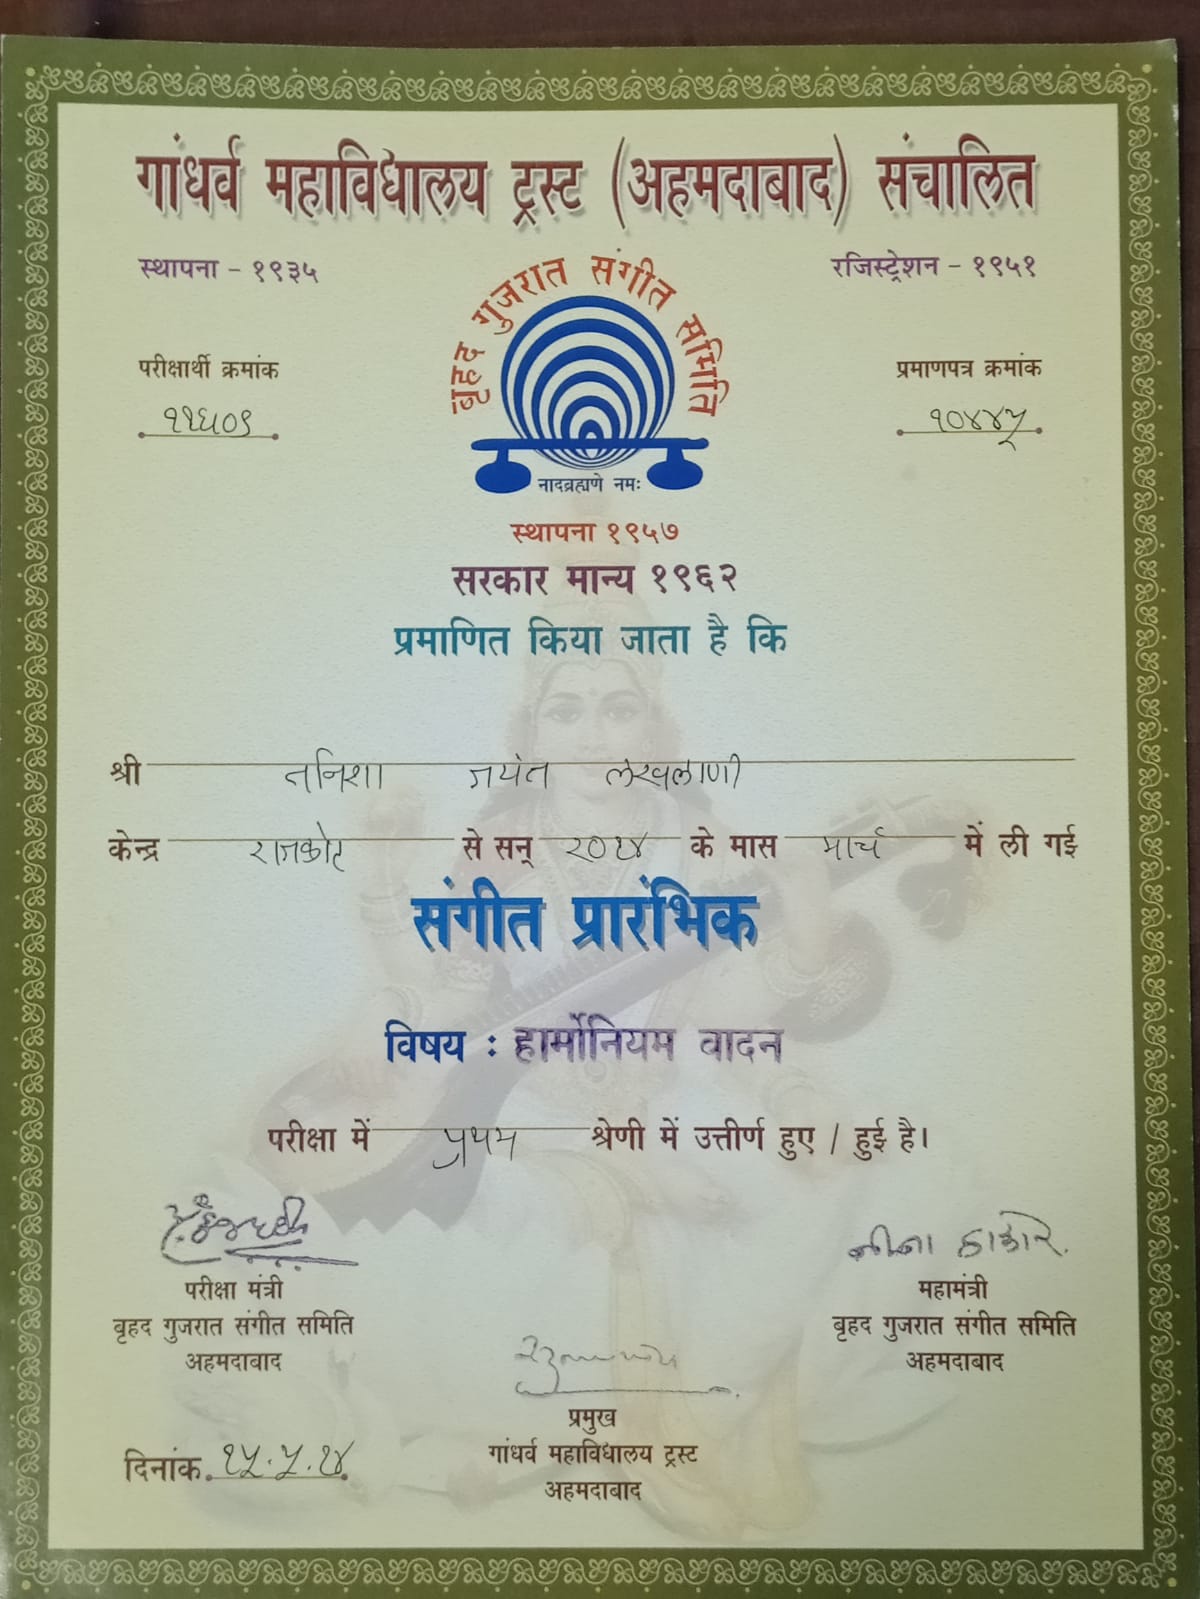 गांधर्व महाविद्यालय ट्रस्ट (अहमदाबाद) संचालित
स्थापना - १९३५
रजिस्ट्रेशन - १९५१
बृहद गुजरात संगीत समिति
परीक्षार्थी क्रमांक
११६०९
प्रमाणपत्र क्रमांक
१०४४५
नादब्रह्मणे नमः
स्थापना १९५७
सरकार मान्य १९६२
प्रमाणित किया जाता है कि
श्री तनिशा जयंत लखलाणी
केन्द्र राजकोट से सन् २०१४ के मास मार्च में ली गई
संगीत प्रारंभिक
विषय : हार्मोनियम वादन
परीक्षा में प्रथम श्रेणी में उत्तीर्ण हुए / हुई है।
परीक्षा मंत्री
बृहद गुजरात संगीत समिति
अहमदाबाद
नीना ठाकोर
महामंत्री
बृहद गुजरात संगीत समिति
अहमदाबाद
प्रमुख
गांधर्व महाविद्यालय ट्रस्ट
अहमदाबाद
दिनांक १५.५.१४